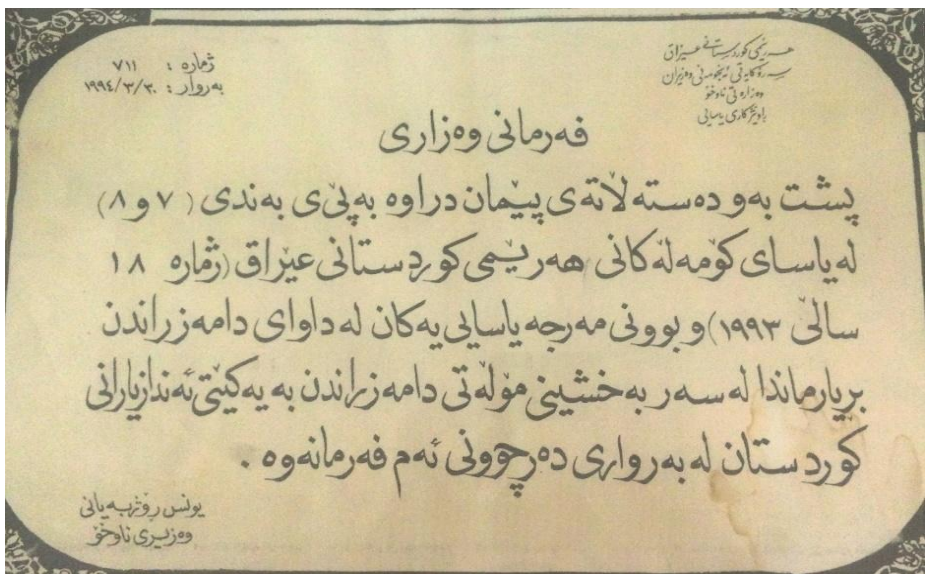 هەرێمی کوردستانی عیراق
سەرۆکایەتی ئەنجومەنی وەزیران
وەزارەتی ناوخۆ
ڕاوێژکاری یاسایی
ژمارە : ٧١١
بەروار : ١٩٩٤/٣/٣٠
فەرمانی وەزاری
پشت بەو دەستەڵاتەی پێمان دراوە بەپێی بەندی ( ٧ و ٨ )
لە یاسای کۆمەڵەکانی هەرێمی کوردستانی عێراق (ژمارە ١٨
ساڵی ١٩٩٣) و بوونی مەرجە یاسایی یەکان لە داوای دامەزراندن
بریارماندا لەسەر بەخشینی مۆڵەتی دامەزراندن بە یەکێتی ئەندازیارانی
کوردستان لە بەرواری دەرچوونی ئەم فەرمانەوە .
یونس ڕۆژبەیانی
وەزیری ناوخۆ